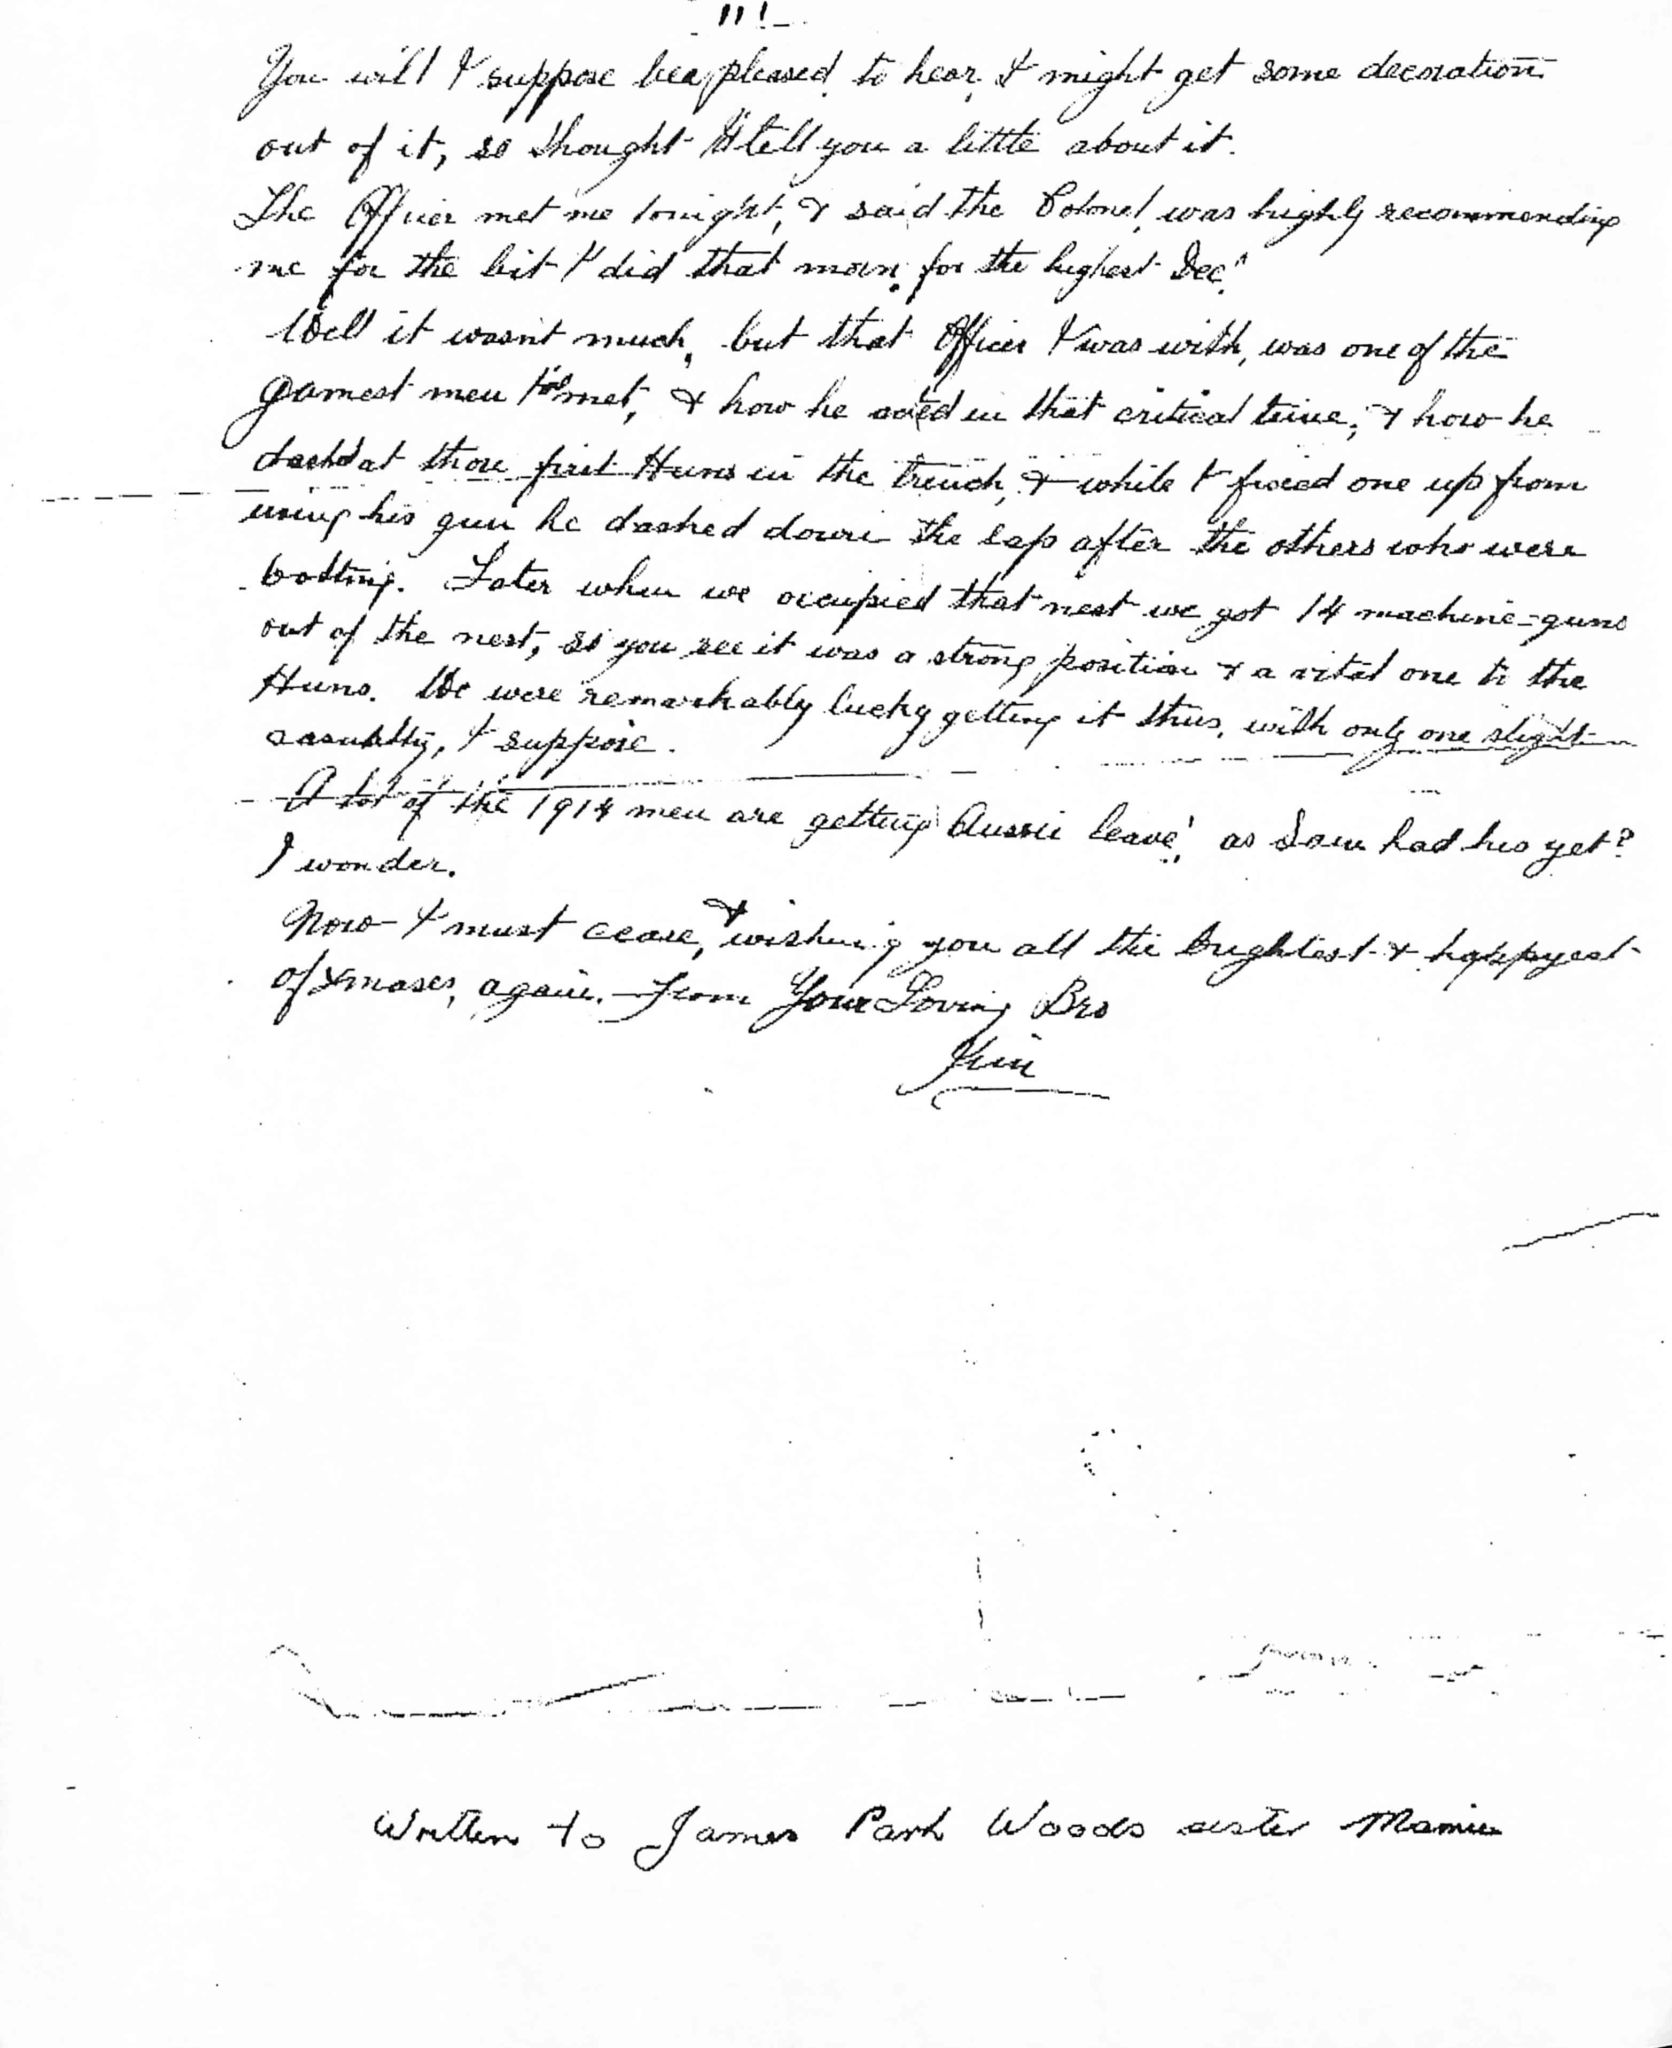 111
You will I suppose bea pleased to hear I might get some decoration
out of it, so thought I'd tell you a little about it.
The Officer met me tonight, & said the Colonel was highly recommending
me for the bit I did that morn. for the highest Dec.n
Well it wasn't much, but that Officer I was with, was one of the
gamest men I've met, & how he acted in that critical time; & how he
dash'd at those first Huns in the trench, & while I fixed one up from
using his gun he dashed down the sap after the others who were
bolting. Later when we occupied that nest we got 14 machine-guns
out of the nest, so you see it was a strong position & a vital one to the
Huns. We were remarkably lucky getting it thus, with only one slight
casualty, I suppose.
A lot of the 1914 men are getting Aussie leave! as Sam had his yet?
I wonder.
Now I must cease, & wishing you all the brightest & happyest
of Xmases, again. — from Your Loving Bro
Jim
Written to James Park Woods sister Mamie